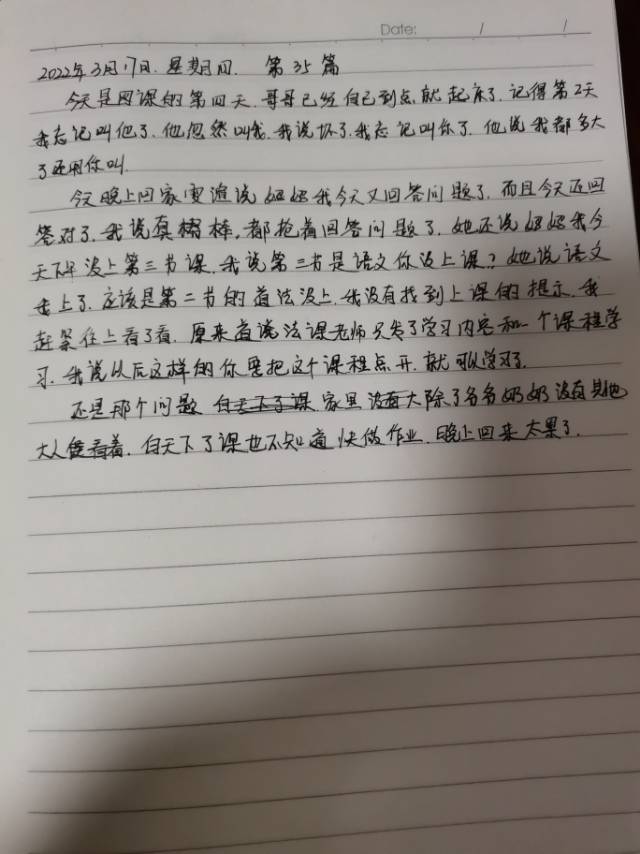 Date: / /
2022年3月17日.星期四. 第35篇
今天是网课的第四天.哥哥已经自己到点就起床了.记得第2天
我忘记叫他了.他忽然叫我.我说坏了.我忘记叫你了.他说我都多大
了还用你叫.
今天晚上回家雯說妈妈我今天又回答问题了.而且今天还回
答对了.我说真棒,都抢着回答问题了.她还说妈妈我今
天下午没上第三节课.我说第三节是语文你没上课?她说语文
我上了.应该是第二节的道法没上.我没有找到上课的提示.我
赶紧往上看了看.原来道法课老师只发了学习内容和一个课程学
习.我说以后这样的你要把这个课程点开.就可以学习了.
还是那个问题 白天下了课 家里没有大除了爷爷奶奶没有其他
大人看着.白天下了课也不知道快做作业.晚上回来太累了.